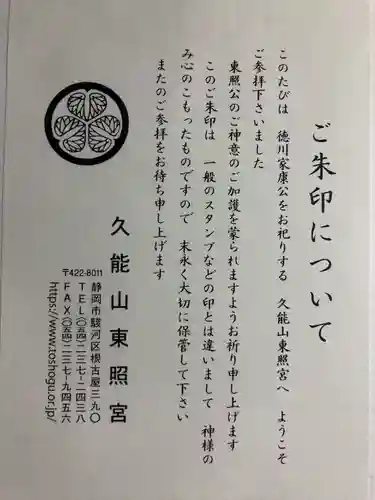 ご朱印について
このたびは 徳川家康公をお祀りする 久能山東照宮へ ようこそ
ご参拝下さいました
東照公のご神意のご加護を蒙られますようお祈り申し上げます
このご朱印は 一般のスタンプなどの印とは違いまして 神様の
み心のこもったものですので 末永く大切に保管して下さい
またのご参拝をお待ち申し上げます
久能山東照宮
〒422-8011
静岡市駿河区根古屋三九〇
TEL(〇五四)二三七-二四三八
FAX(〇五四)二三七-九四五六
https://www.toshogu.or.jp/